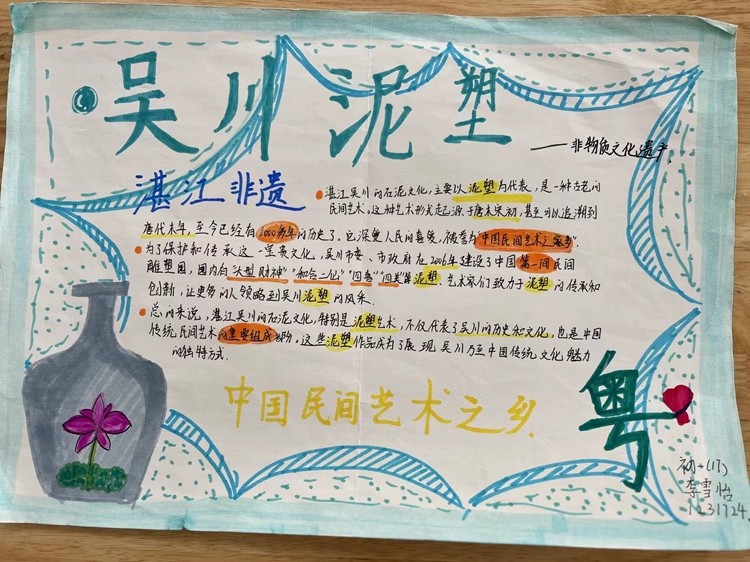 吴川泥塑
——非物质文化遗产.
湛江非遗
湛江吴川的石泥文化,主要以泥塑为代表,是一种古老的
民间艺术。这种艺术形式起源于唐末宋初,甚至可以追溯到
唐代末年,至今已经有1000多年的历史了。它深受人民的喜爱,被誉为“中国民间艺术之家乡”
为了保护和传承这一宝贵文化,吴川市委、市政府在2006年建设了中国第一间民间
雕塑园,园内有“大型财神”“和合二仙”“四喜”“四美”等泥塑.艺术家们致力于泥塑的传承和
创新,让更多的人领略到吴川泥塑的风采.
总的来说,湛江吴川的石泥文化,特别是泥塑艺术,不仅代表了吴川的历史和文化,也是中国
传统民间艺术的重要组成部分,这些泥塑作品成为了展现吴川乃至中国传统文化魅力
的独特方式.
中国民间艺术之乡.
粤
初一(17)
李雪怡
1231724.